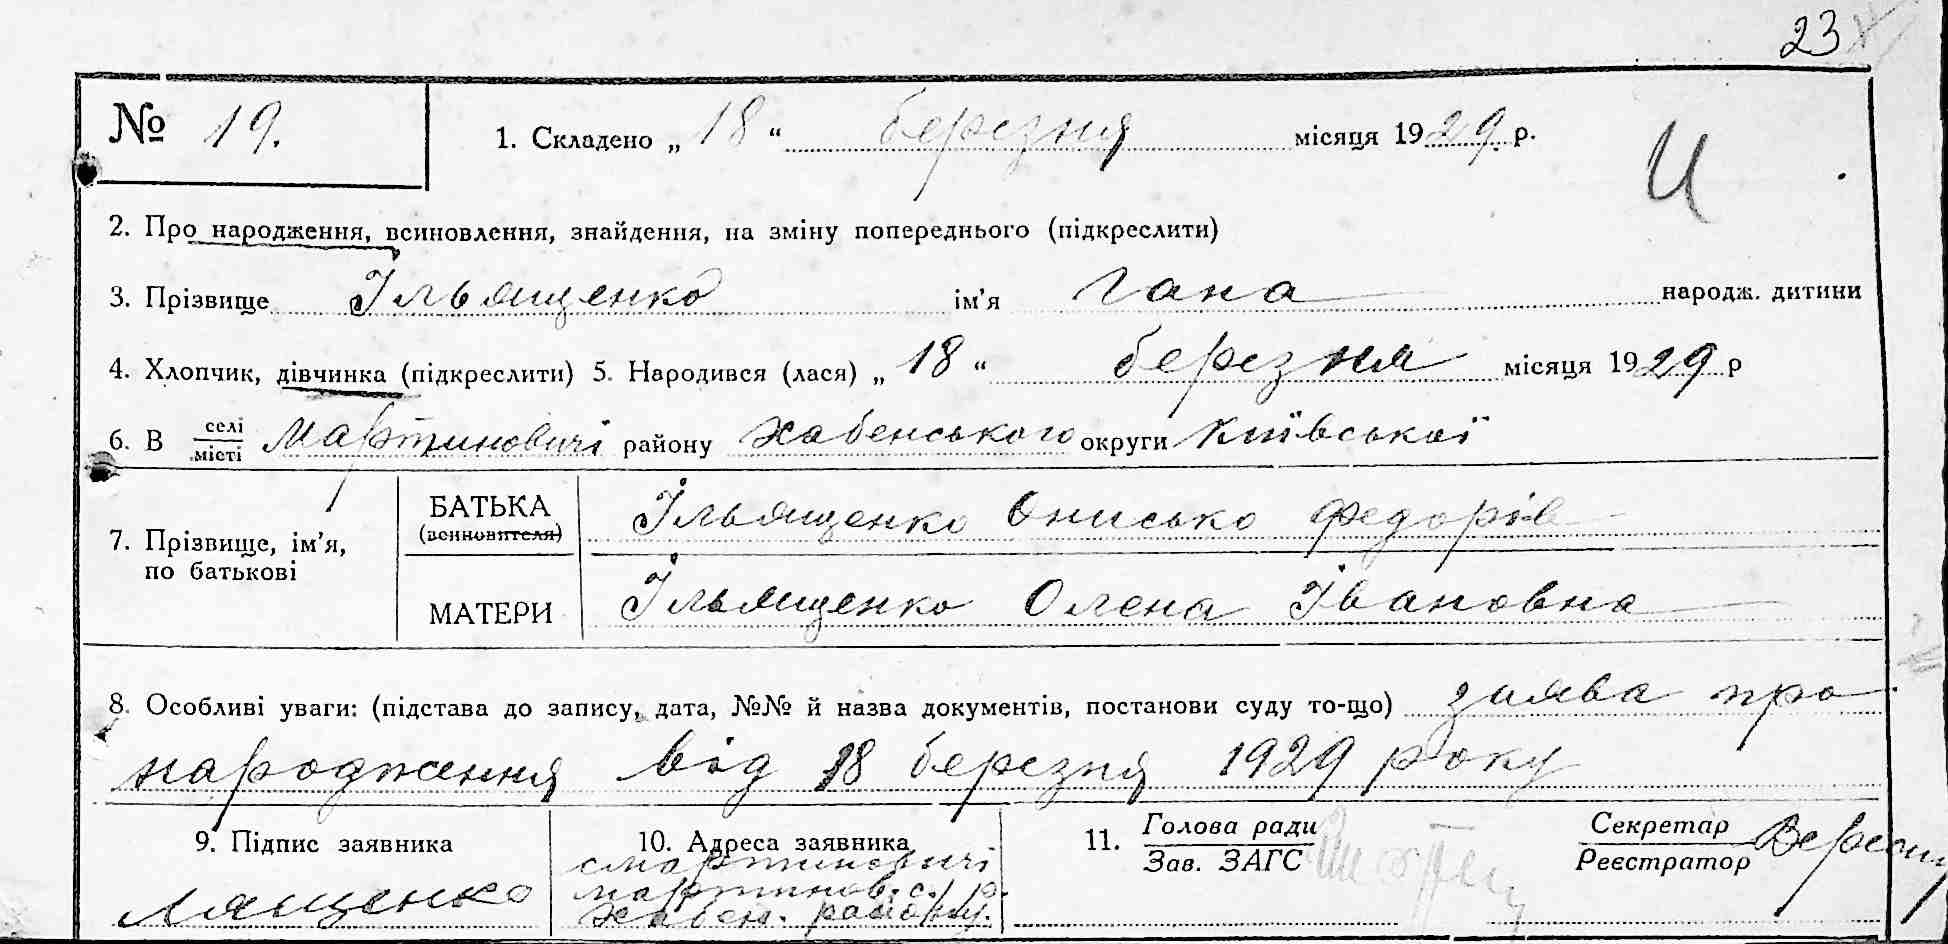 23
№ 19. 1. Складено „ 18 “ березня місяця 1929 р.
И
2. Про народження, всиновлення, знайдення, на зміну попереднього (підкреслити)
3. Прізвище Ільященко ім'я Гана народж. дитини
4. Хлопчик, дівчинка (підкреслити) 5. Народився (лася) „ 18 “ березня місяця 1929 р
6. В селі місті Мартиновичі району Хабенського округи Київської
7. Прізвище, ім'я, по батькові
БАТЬКА (всиновителя) Ільященко Онисько Федорів
МАТЕРИ Ільященко Олена Івановна
8. Особливі уваги: (підстава до запису, дата, №№ й назва документів, постанови суду то-що) заява про
народження від 18 березня 1929 року
9. Підпис заявника
Лященко
10. Адреса заявника
с мартиновичі
мартинов. с. р.
Хабен. району.
11. Голова ради
Зав. ЗАГС
Секретар
Реєстратор